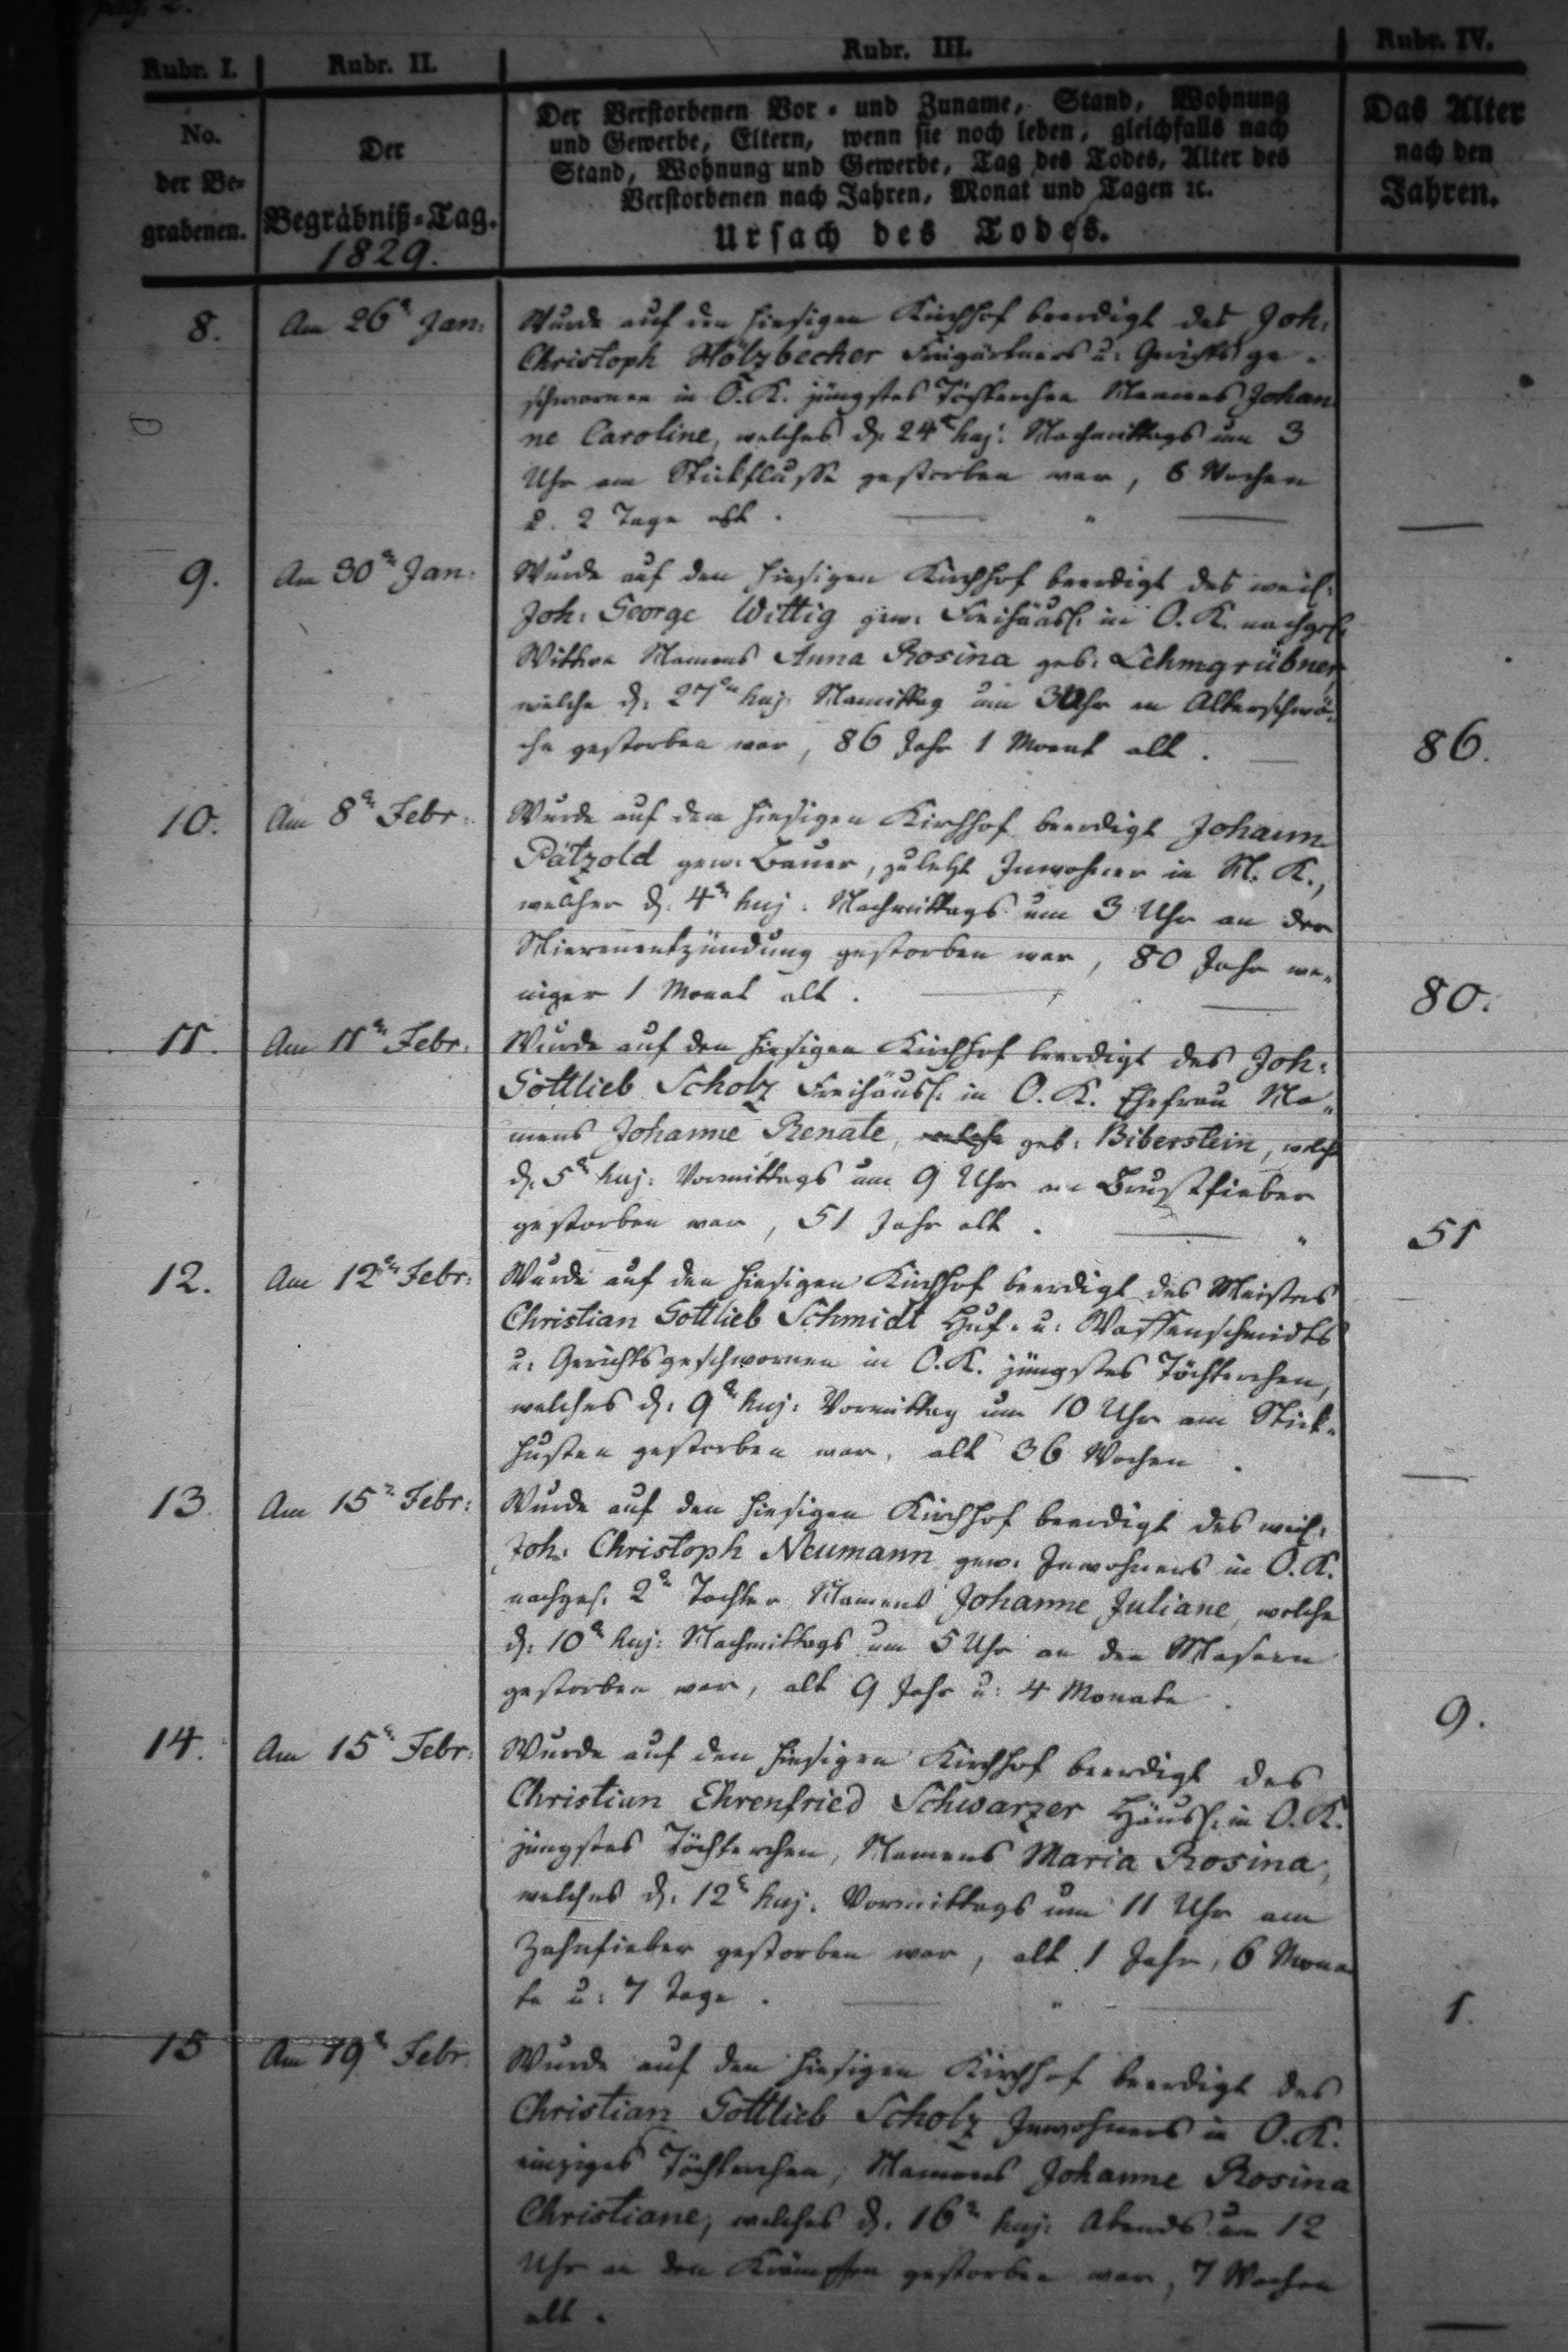 Rubr. I.
Rubr. II.
Rubr. III.
Rubr. IV.
No.
der Be-
grabenen.
Der
Begräbniß-Tag.
1829.
Der Verstorbenen Vor- und Zuname, Stand, Wohnung
und Gewerbe, Eltern, wenn sie noch leben, gleichfalls nach
Stand, Wohnung und Gewerbe, Tag des Todes, Alter des
Verstorbenen nach Jahren, Monat und Tagen ꝛc.
Ursach des Todes.
Das Alter
nach den
Jahren.
8.
Am 26n Jan:
Wurde auf den hiesigen Kirchhof beerdigt des Joh:
Christoph Hölzbecher Freigärtners u: Gerichtsge-
schwornen in O. K. jüngstes Töchterchen Namens Johan
ne Caroline, welches d: 24n huj: Nachmittags um 3
Uhr am Stickflusse gestorben war, 6 Wochen
u. 2 Tage alt.
—
9.
Am 30n Jan:
Wurde auf den hiesigen Kirchhof beerdigt des weil:
Joh: George Wittig gew: Freihäusl: in O. K. nachgel:
Wittwe Namens Anna Rosina geb: Lehmgrübner,
welche d: 27n huj: Namittag um 3 Uhr an Altersschwä-
che gestorben war, 86 Jahr 1 Monat alt.
86.
10.
Am 8n Febr:
Wurde auf den hiesigen Kirchhof beerdigt Johann
Pätzold gew: Bauer, zuletzt Inwohner in N. K.,
welcher d: 4n huj: Nachmittags um 3 Uhr an der
Nierenentzündung gestorben war, 80 Jahr we-
niger 1 Monat alt.
80.
11.
Am 11n Febr:
Wurde auf den hiesigen Kirchhof beerdigt des Joh:
Gottlieb Scholz Freihäusl: in O. K. Ehefrau Na-
mens Johanne Renate, welche geb: Biberstein, welche
d: 5n huj: Vormittags um 9 Uhr am Brustfieber
gestorben war, 51 Jahr alt.
51
12.
Am 12n Febr:
Wurde auf den hiesigen Kirchhof beerdigt des Meisters
Christian Gottlieb Schmidt Huf- u: Waffenschmidts
u: Gerichtsgeschwornen in O. K. jüngstes Töchterchen,
welches d: 9n huj: Vormittag um 10 Uhr am Stick-
husten gestorben war, alt 36 Wochen.
—
13.
Am 15n Febr:
Wurde auf den hiesigen Kirchhof beerdigt des weil:
Joh: Christoph Neumann gew: Inwohners in O. K.
nachgel: 2n Tochter Namens Johanne Juliane, welche
d: 10n huj: Nachmittags um 5 Uhr an den Masern
gestorben war, alt 9 Jahr u: 4 Monate.
9.
14.
Am 15n Febr:
Wurde auf den hiesigen Kirchhof beerdigt des
Christian Ehrenfried Schwarzer Häusl: in O. K.
jüngstes Töchterchen, Namens Maria Rosina,
welches d: 12n huj: Vormittags um 11 Uhr am
Zahnfieber gestorben war, alt 1 Jahr, 6 Mona-
te u: 7 Tage.
1.
15
Am 19n Febr.
Wurde auf den hiesigen Kirchhof beerdigt des
Christian Gottlieb Scholz Inwohners in O. K.
einziges Töchterchen, Namens Johanne Rosina
Christiane, welches d: 16n huj: Abends um 12
Uhr an den Krämpfen gestorben war, 7 Wochen
alt.
—